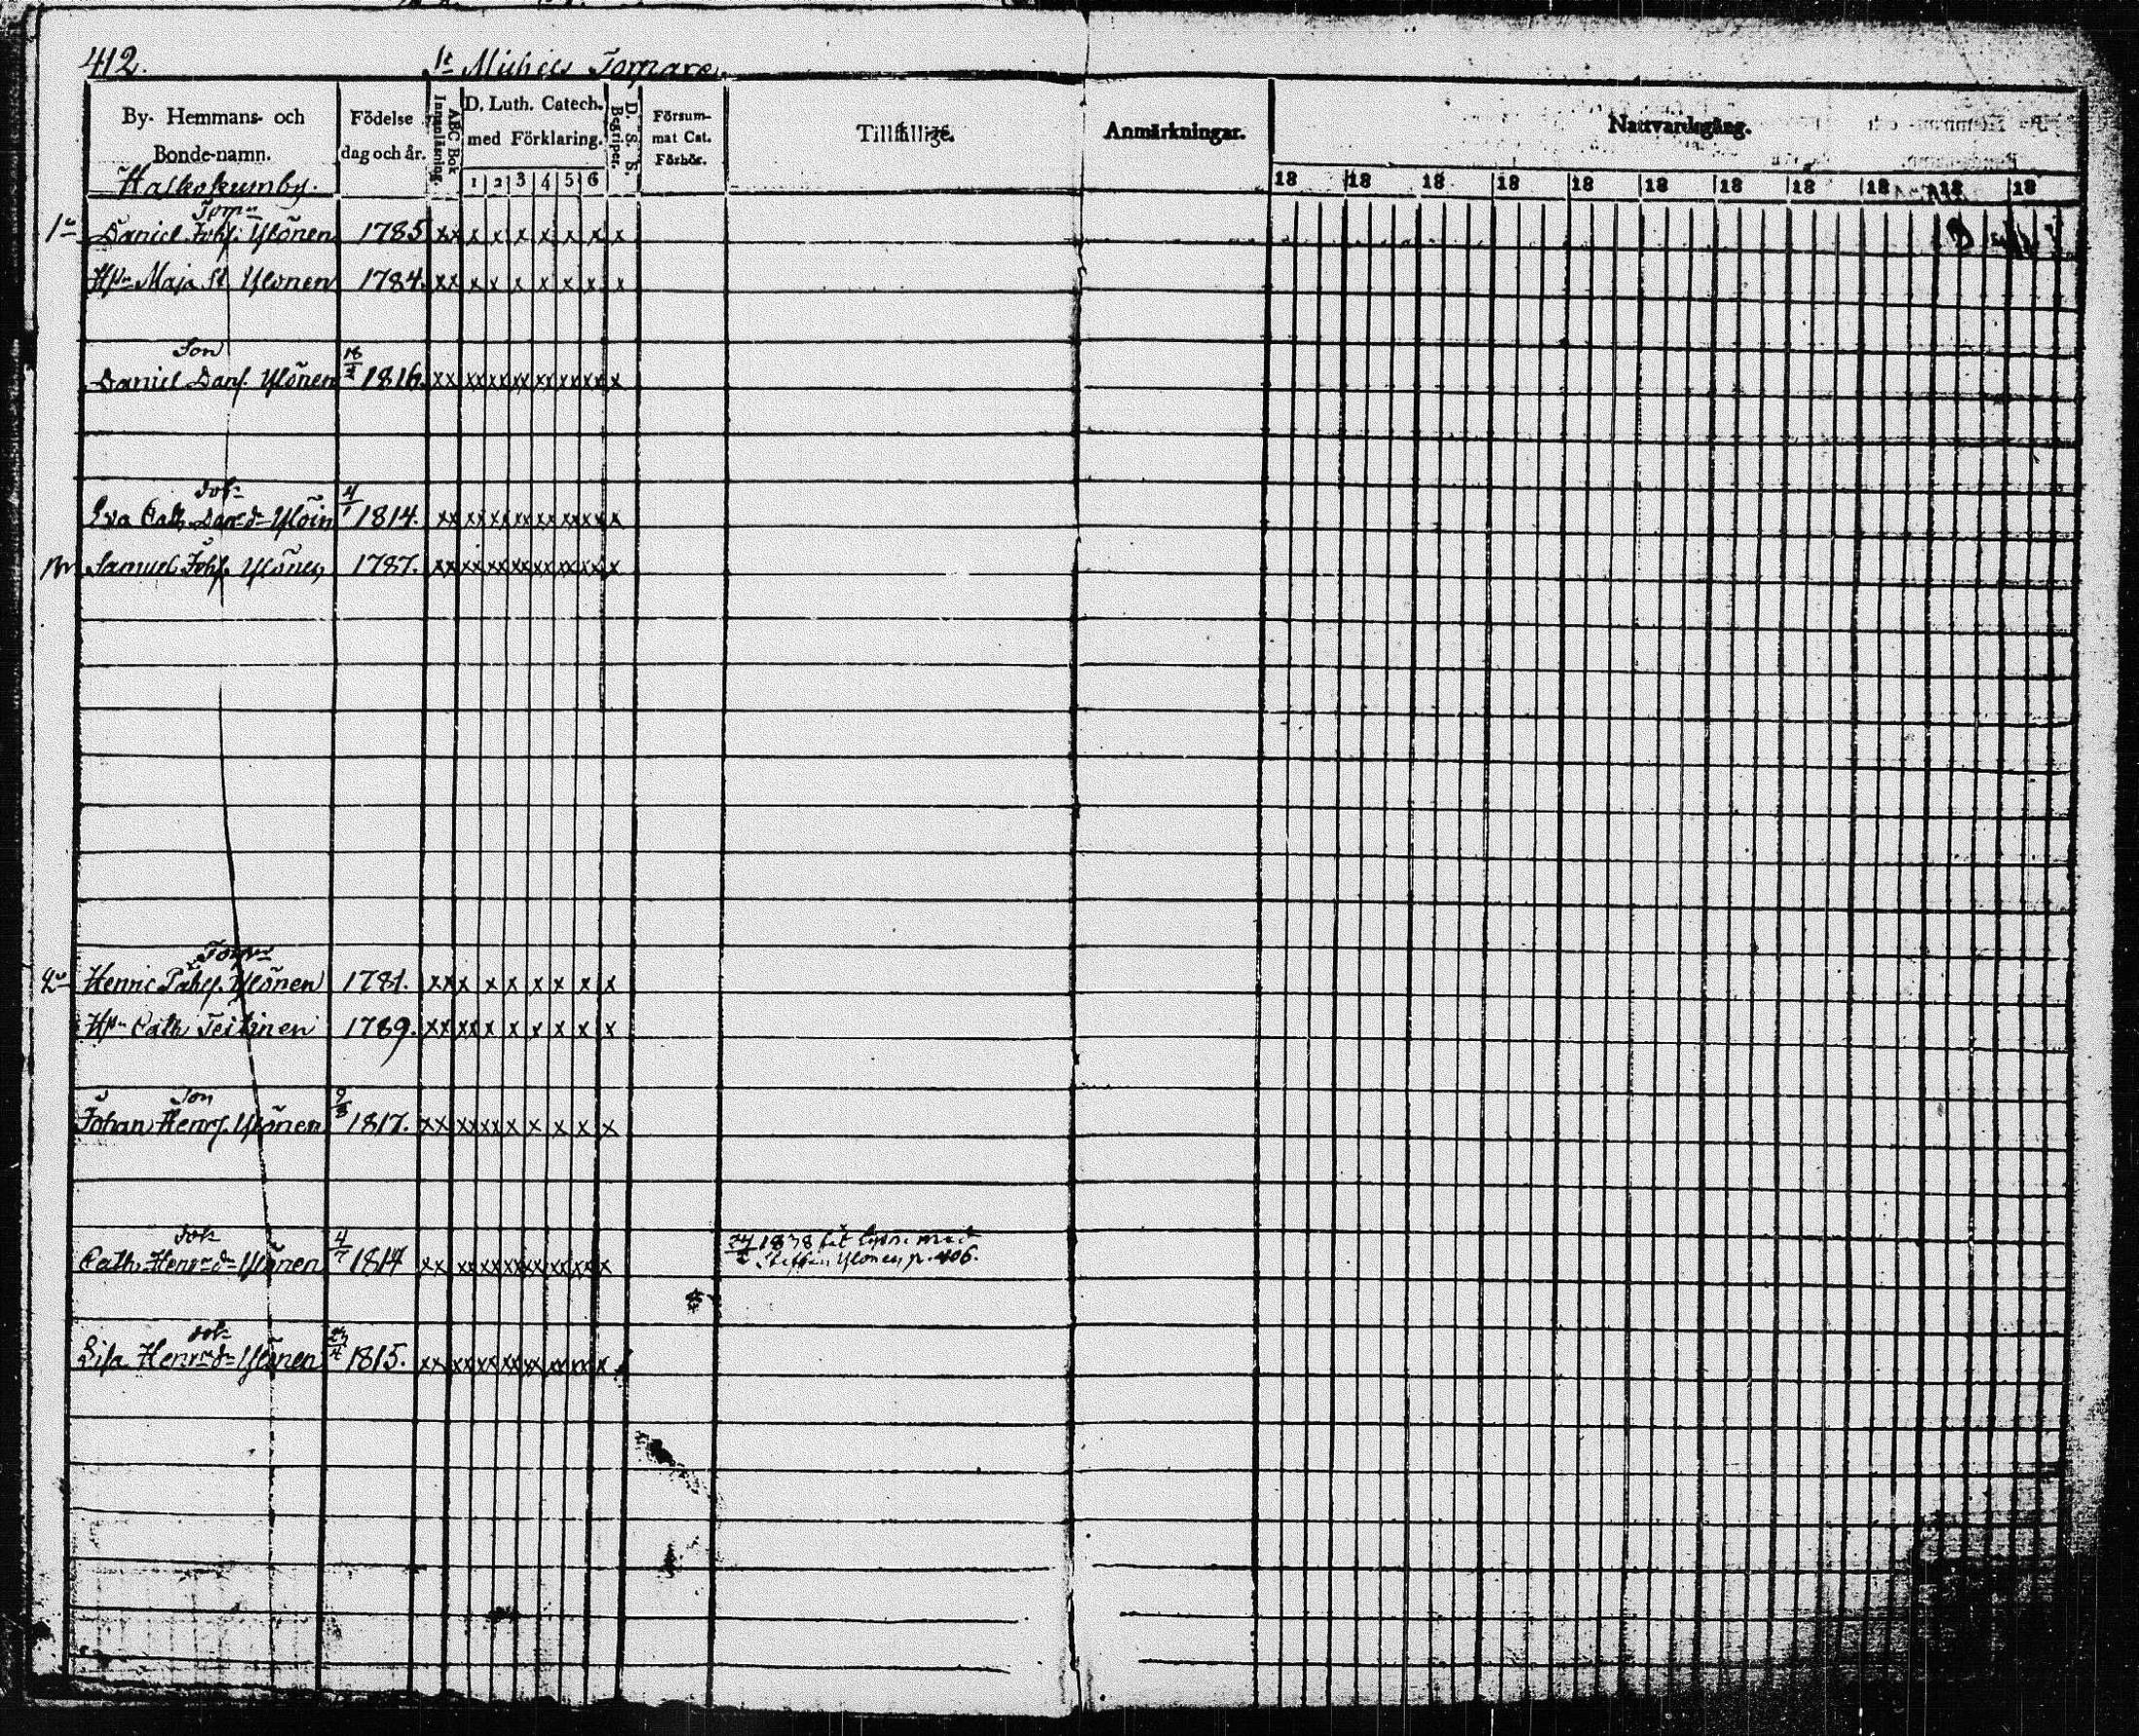 412. St Michels Tornare
By- Hemmans- och Bonde-namn.
Födelse dag och år.
ABC Bok Innanläsning.
D. Luth. Catech. med Förklaring.
1 2 3 4 5 6
D. S. B. Begriper.
Försum- mat Cat. Förhör.
Tillfällige.
Anmärkningar.
Nattvardsgång.
18 18 18 18 18 18 18 18 18 18 18
Torpn
1n Daniel Johs. Ylönen 1785 xx x x x x x x x
Hn Maja St Ylönen 1784. xx x x x x x x x
Son
Daniel Dans. Ylönen 18/2 1816. xx xx xx xx xx xx xx x
dotr
Eva Cath Dansdr Ylöin 4/1 1814. xx xx xx xx xx xx xx x
Samuel Johs. Ylönen 1787. xx xx xx xx xx xx xx x
Torpn
2n Henric Påhls. Ylönen 1781. xx x x x x x x x
Hn Cath Teitinen 1789. xx xx x x x x x x
Son
Johan Henrs. Ylönen 9/3 1817. xx xx xx x x x x x
dotr
Cath. Henrsdr Ylönen 4/7 1814 xx xx xx xx xx xx xx x
1838 med
Staffan Ylönen p. 406.
dotr
Lisa Henrsdr Ylönen 1815. xx xx xx xx xx xx xx x